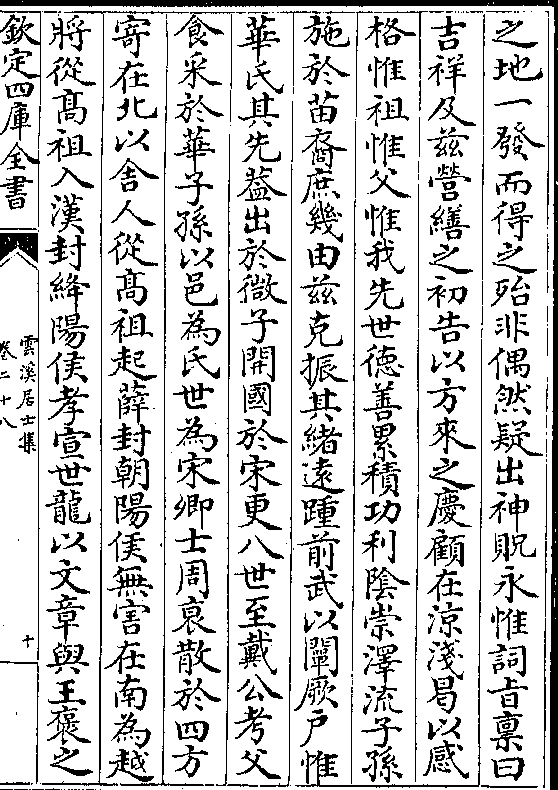 之地一發而得之殆非偶然疑出神貺永惟詞旨稟曰
吉祥及茲營繕之初告以方來之慶顧在涼淺曷以感
格惟祖惟父惟我先世德善累積功利陰崇澤流子孫
施於苗裔庶幾由茲克振其緒遠踵前武以闡厥戶惟
華氏其先葢出於微子開國於宋更八世至戴公考父
食采於華子孫以邑為氏世為宋卿士周衰散於四方
寄在北以舍人從髙祖起薛封朝陽侯無害在南為越
將從髙祖入漢封絳陽侯孝宣世龍以文章與王褒之
欽定四庫全書
雲溪居士集
卷二十八
十